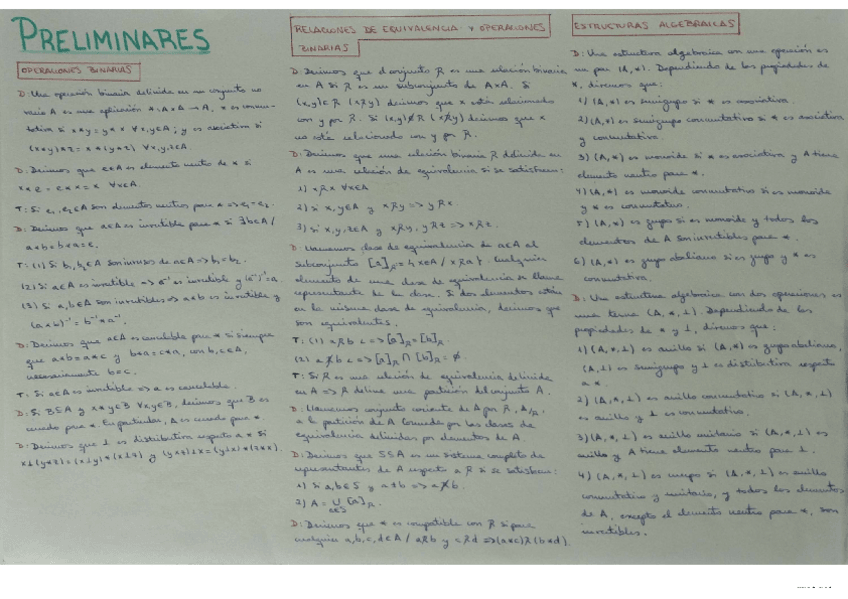 PRELIMINARES
OPERACIONES BINARIAS
D: Una operación binaria definida en un conjunto no
vacío A es una aplicación *: A×A → A. * es conmu-
tativa si x*y = y*x ∀x,y∈A; y es asociativa si
(x*y)*z = x*(y*z) ∀x,y,z∈A.
D: Decimos que e∈A es elemento neutro de * si
x*e = e*x = x ∀x∈A.
T: Si e₁, e₂∈A son elementos neutros para * => e₁=e₂.
D: Decimos que a∈A es invertible para * si ∃b∈A /
a*b = b*a = e.
T: (1) Si b₁, b₂∈A son inversos de a∈A => b₁=b₂.
(2) Si a∈A es invertible => a⁻¹ es invertible y (a⁻¹)⁻¹=a.
(3) Si a,b∈A son invertibles => a*b es invertible y
(a*b)⁻¹ = b⁻¹*a⁻¹.
D: Decimos que a∈A es cancelable para * si siempre
que a*b = a*c y b*a = c*a, con b,c∈A,
necesariamente b=c.
T: Si a∈A es invertible => a es cancelable.
D: Si B⊆A y x*y∈B ∀x,y∈B, decimos que B es
cerrado para *. En particular, A es cerrado para *.
D: Decimos que ⊥ es distributiva respecto a * si
x⊥(y*z) = (x⊥y)*(x⊥z) y (y*z)⊥x = (y⊥x)*(z⊥x).
RELACIONES DE EQUIVALENCIA Y OPERACIONES
BINARIAS
D: Decimos que el conjunto R es una relación binaria
en A si R es un subconjunto de A×A. Si
(x,y)∈R (xRy) decimos que x está relacionado
con y por R. Si (x,y)∉R (xRy) decimos que x
no está relacionado con y por R.
D: Decimos que una relación binaria R definida en
A es una relación de equivalencia si se satisfacen:
1) xRx ∀x∈A
2) si x,y∈A y xRy => yRx.
3) si x,y,z∈A y xRy, yRz => xRz.
D: Llamaremos clase de equivalencia de a∈A al
subconjunto [a]R = {x∈A / xRa}. Cualquier
elemento de una clase de equivalencia se llama
representante de la clase. Si dos elementos están
en la misma clase de equivalencia, decimos que
son equivalentes.
T: (1) aRb <=> [a]R = [b]R.
(2) aRb <=> [a]R ∩ [b]R = ∅.
T: Si R es una relación de equivalencia definida
en A => R define una partición del conjunto A.
D: Llamaremos conjunto cociente de A por R, A/R,
a la partición de A formada por las clases de
equivalencia definidas por elementos de A.
D: Decimos que S⊆A es un sistema completo de
representantes de A respecto a R si se satisface:
1) Si a,b∈S y a≠b => aRb.
2) A = ∪ [a]R.
a∈S
D: Decimos que * es compatible con R si para
cualquier a,b,c,d∈A / aRb y cRd => (a*c)R(b*d).
ESTRUCTURAS ALGEBRAICAS
D: Una estructura algebraica con una operación es
un par (A,*). Dependiendo de las propiedades de
*, diremos que:
1) (A,*) es semigrupo si * es asociativa.
2) (A,*) es semigrupo conmutativo si * es asociativa
y conmutativa.
3) (A,*) es monoide si * es asociativa y A tiene
elemento neutro para *.
4) (A,*) es monoide conmutativo si es monoide
y * es conmutativa.
5) (A,*) es grupo si es monoide y todos los
elementos de A son invertibles para *.
6) (A,*) es grupo abeliano si es grupo y * es
conmutativa.
D: Una estructura algebraica con dos operaciones es
una terna (A,*,⊥). Dependiendo de las
propiedades de * y ⊥, diremos que:
1) (A,*,⊥) es anillo si (A,*) es grupo abeliano,
(A,⊥) es semigrupo y ⊥ es distributiva respecto
a *.
2) (A,*,⊥) es anillo conmutativo si (A,*,⊥)
es anillo y ⊥ es conmutativa.
3) (A,*,⊥) es anillo unitario si (A,*,⊥) es
anillo y A tiene elemento neutro para ⊥.
4) (A,*,⊥) es cuerpo si (A,*,⊥) es anillo
conmutativo y unitario, y todos los elementos
de A, excepto el elemento neutro para *, son
invertibles.